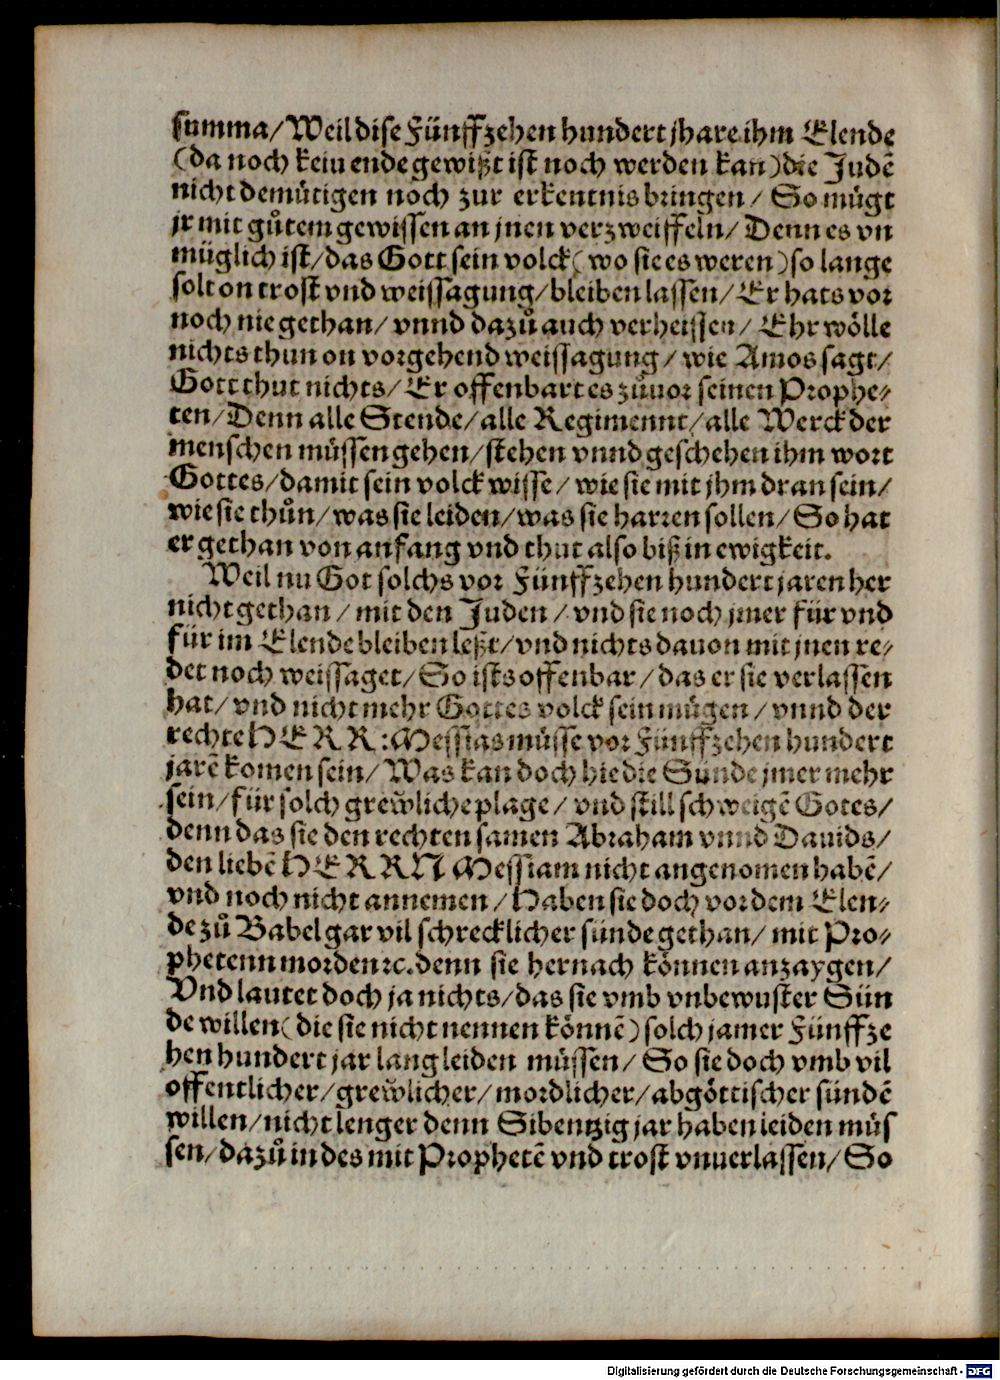 summa/ Weil dise Fünffzehen hundert jhare ihm Elende
(da noch keiu ende gewißt ist noch werden kan) die Judē
nicht demütigen noch zur erkentnis bringen/ So mügt
jr mit gůtem gewissen an jnen verzweiffeln/ Denn es vn
müglich ist/ das Gott sein volck (wo sie es weren) so lange
solt on trost vnd weissagung/ bleiben lassen/ Er hats vor
noch nie gethan/ vnnd dazů auch verheissen/ Ehr wölle
nichts thun on vorgehend weissagung/ wie Amos sagt/
Gott thut nichts/ Er offenbart es zůuor seinen Prophe⸗
ten/ Denn alle Stende/ alle Regimennt/ alle Werck der
menschen müssen gehen/ stehen vnnd geschehen ihm wort
Gottes/ damit sein volck wisse/ wie sie mit jhm dran sein/
wie sie thůn/ was sie leiden/ was sie harren sollen/ So hat
er gethan von anfang vnd thut also biß in ewigkeit.
Weil nu Got solchs vor Fünffzehen hundert jaren her
nicht gethan/ mit den Juden/ vnd sie noch jmer für vnd
für im Elende bleiben leßt/ vnd nichts dauon mit jnen re⸗
det noch weissaget/ So ists offenbar/ das er sie verlassen
hat/ vnd nicht mehr Gottes volck sein mügen/ vnnd der
rechte HERR: Messias müsse vor Fünffzehen hundert
jarē komen sein/ Was kan doch hie die Sünde jmer mehr
sein/ für solch grewliche plage/ vnd still schweigē Gotes/
denn das sie den rechten samen Abraham vnnd Dauids/
den liebē HERRN Messiam nicht angenomen habē/
vnd noch nicht annemen/ Haben sie doch vor dem Elen⸗
de zů Babel gar vil schrecklicher sünde gethan/ mit Pro⸗
phetenn morden ꝛc. denn sie hernach können anzaygen/
Vnd lautet doch ja nichts/ das sie vmb vnbewuster Sün
de willen (die sie nicht nennen könnē) solch jamer Fünffze
hen hundert jar lang leiden müssen/ So sie doch vmb vil
offentlicher/ grewlicher/ mordlicher/ abgöttischer sündē
willen/ nicht lenger denn Sibentzig jar haben leiden müs
sen/ dazů in des mit Prophetē vnd trost vnuerlassen/ So
Digitalisierung gefördert durch die Deutsche Forschungsgemeinschaft - DFG